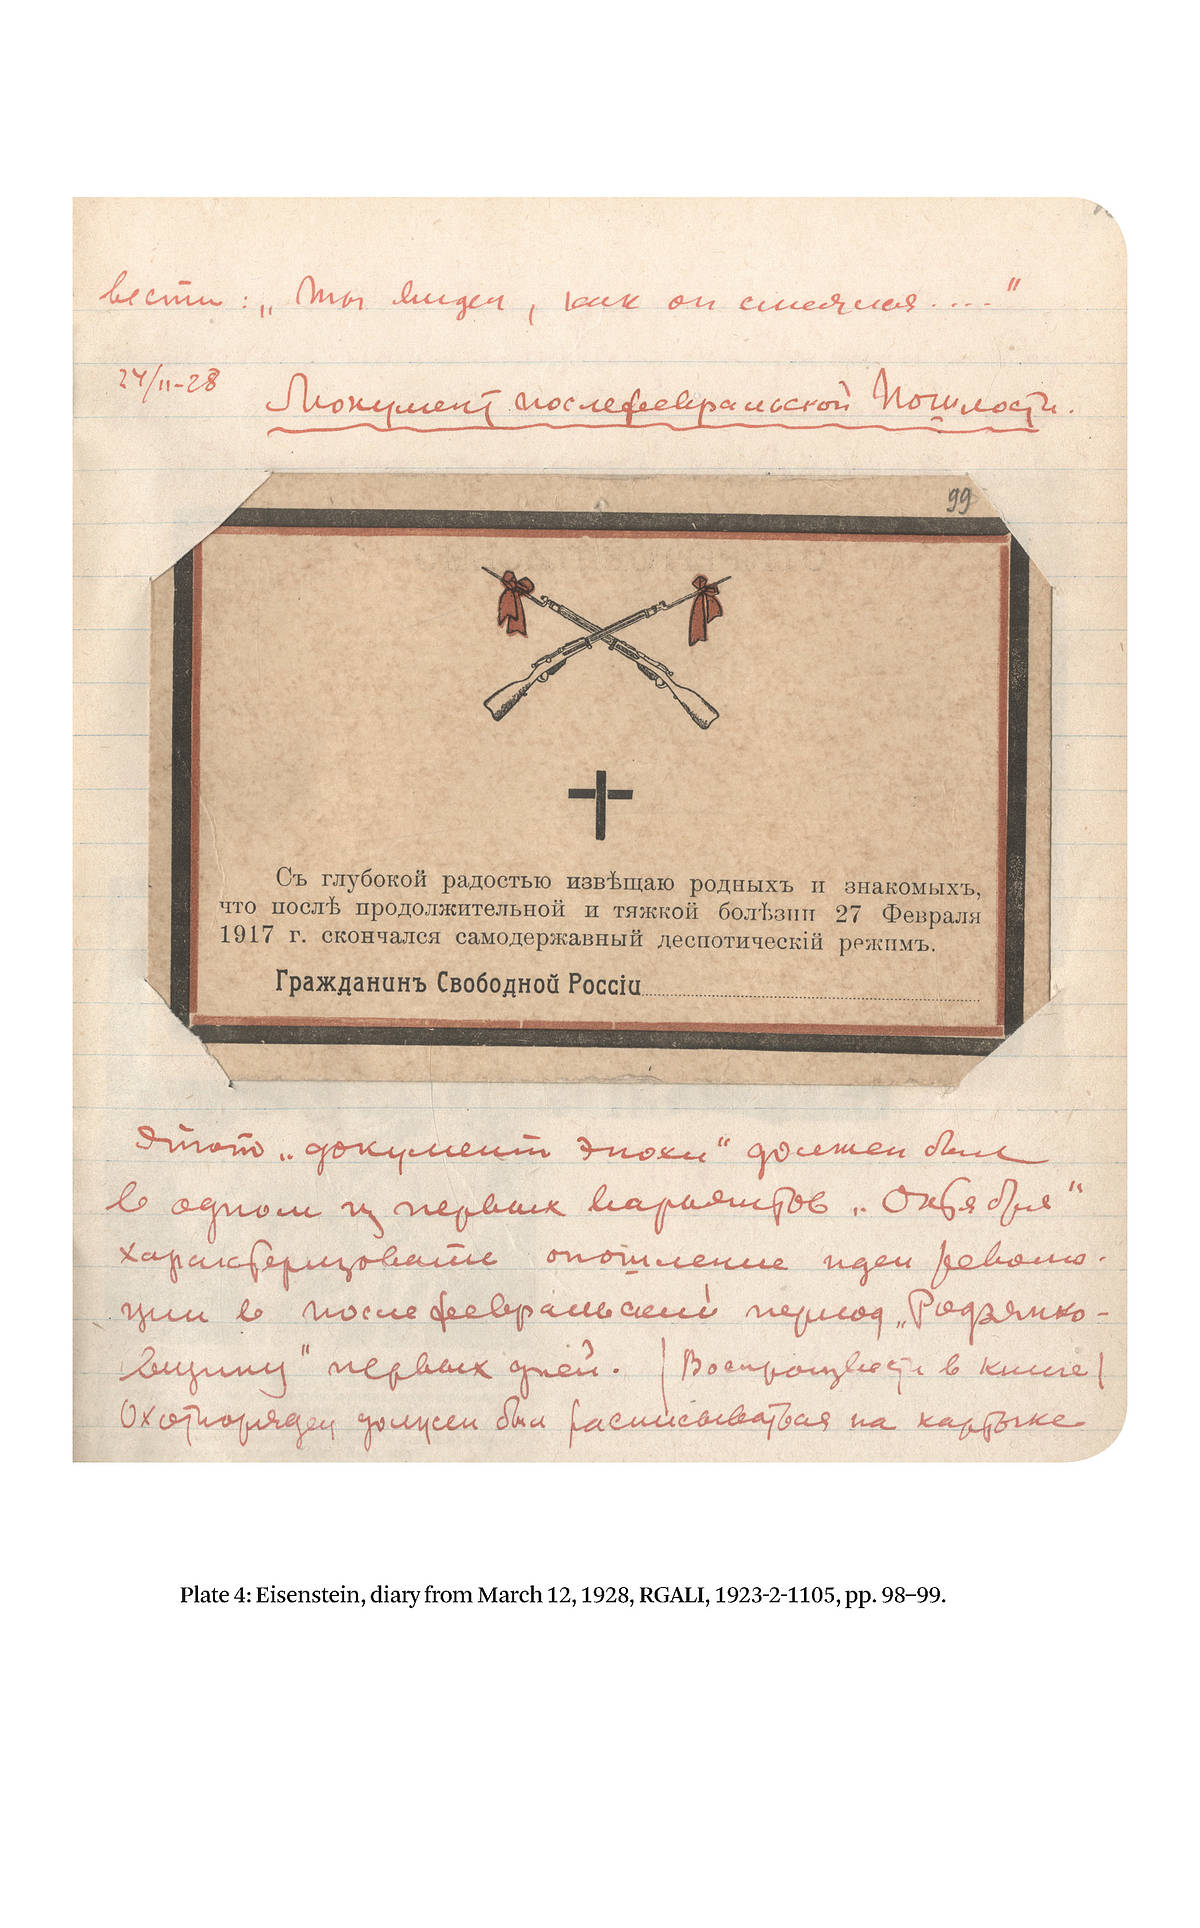 вести: „Ты видел, как он смеялся...."
24/II-28
Монумент послефевральской Пошлости.
99
Съ глубокой радостью извѣщаю родныхъ и знакомыхъ,
что послѣ продолжительной и тяжкой болѣзни 27 Февраля
1917 г. скончался самодержавный деспотическій режимъ.
Гражданинъ Свободной Россіи
Этот „документ эпохи" должен был
в одном из первых вариантов „Октября"
характеризовать опошление идеи револю-
ции в послефевральский период „Родзянко-
вщину" первых дней. (Воспроизвести в книге)
Охотнорядец должен был расписываться на карточке
Plate 4: Eisenstein, diary from March 12, 1928, RGALI, 1923-2-1105, pp. 98–99.